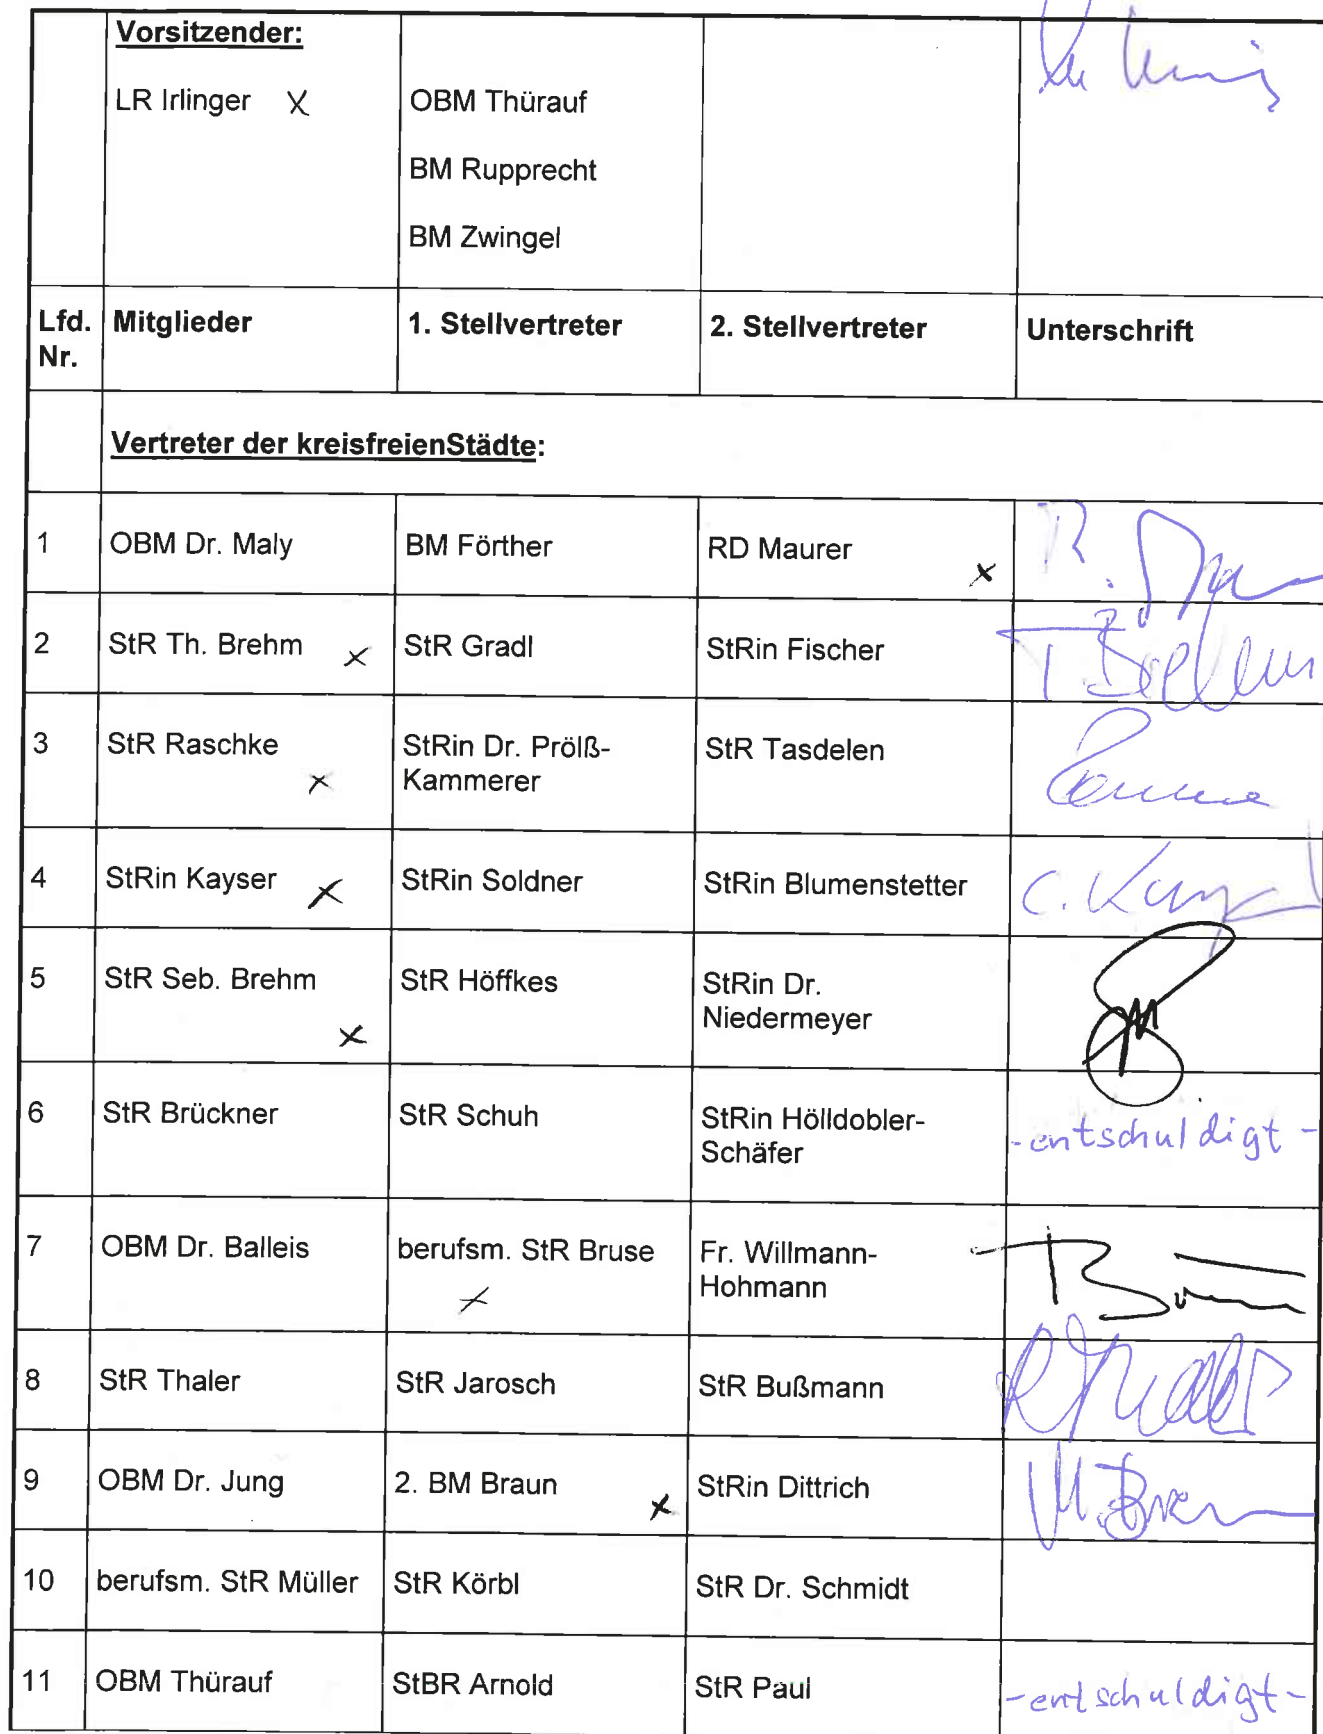 Vorsitzender:
LR Irlinger X OBM Thürauf
BM Rupprecht
BM Zwingel
Lfd. Nr. Mitglieder 1. Stellvertreter 2. Stellvertreter Unterschrift
Vertreter der kreisfreienStädte:
1 OBM Dr. Maly BM Förther RD Maurer x
2 StR Th. Brehm x StR Gradl StRin Fischer
3 StR Raschke x StRin Dr. Prölß-
Kammerer StR Tasdelen
4 StRin Kayser x StRin Soldner StRin Blumenstetter
5 StR Seb. Brehm x StR Höffkes StRin Dr.
Niedermeyer
6 StR Brückner StR Schuh StRin Hölldobler-
Schäfer -entschuldigt-
7 OBM Dr. Balleis berufsm. StR Bruse x Fr. Willmann-
Hohmann
8 StR Thaler StR Jarosch StR Bußmann
9 OBM Dr. Jung 2. BM Braun x StRin Dittrich
10 berufsm. StR Müller StR Körbl StR Dr. Schmidt
11 OBM Thürauf StBR Arnold StR Paul -entschuldigt-